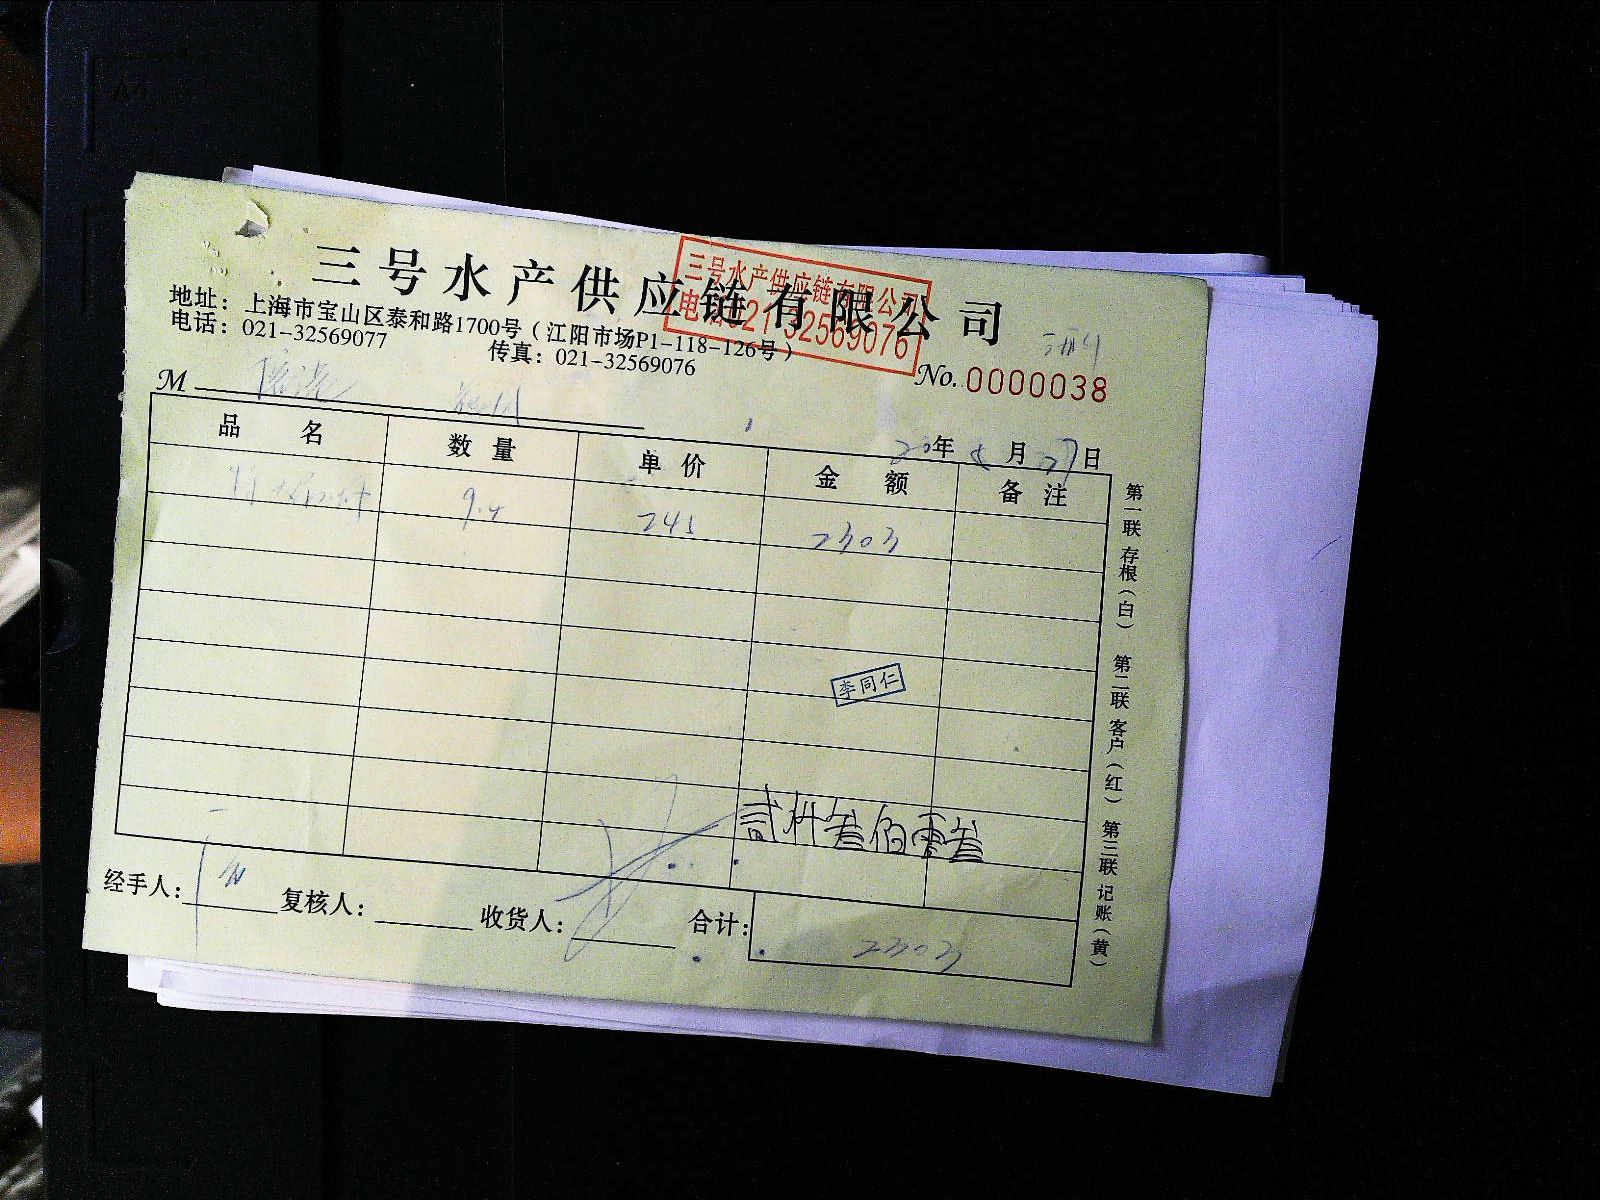 三号水产供应链有限公司
三号水产供应链有限公司
电话021-32569076
地址：上海市宝山区泰和路1700号（江阳市场P1-118-126号）
电话：021-32569077 传真：021-32569076
No.0000038
M
20年 月27日
品名 数量 单价 金额 备注
9.4 245 2303
李同仁
贰仟叁佰零叁
经手人： 复核人： 收货人： 合计：2303
第一联 存根（白） 第二联 客户（红） 第三联 记账（黄）